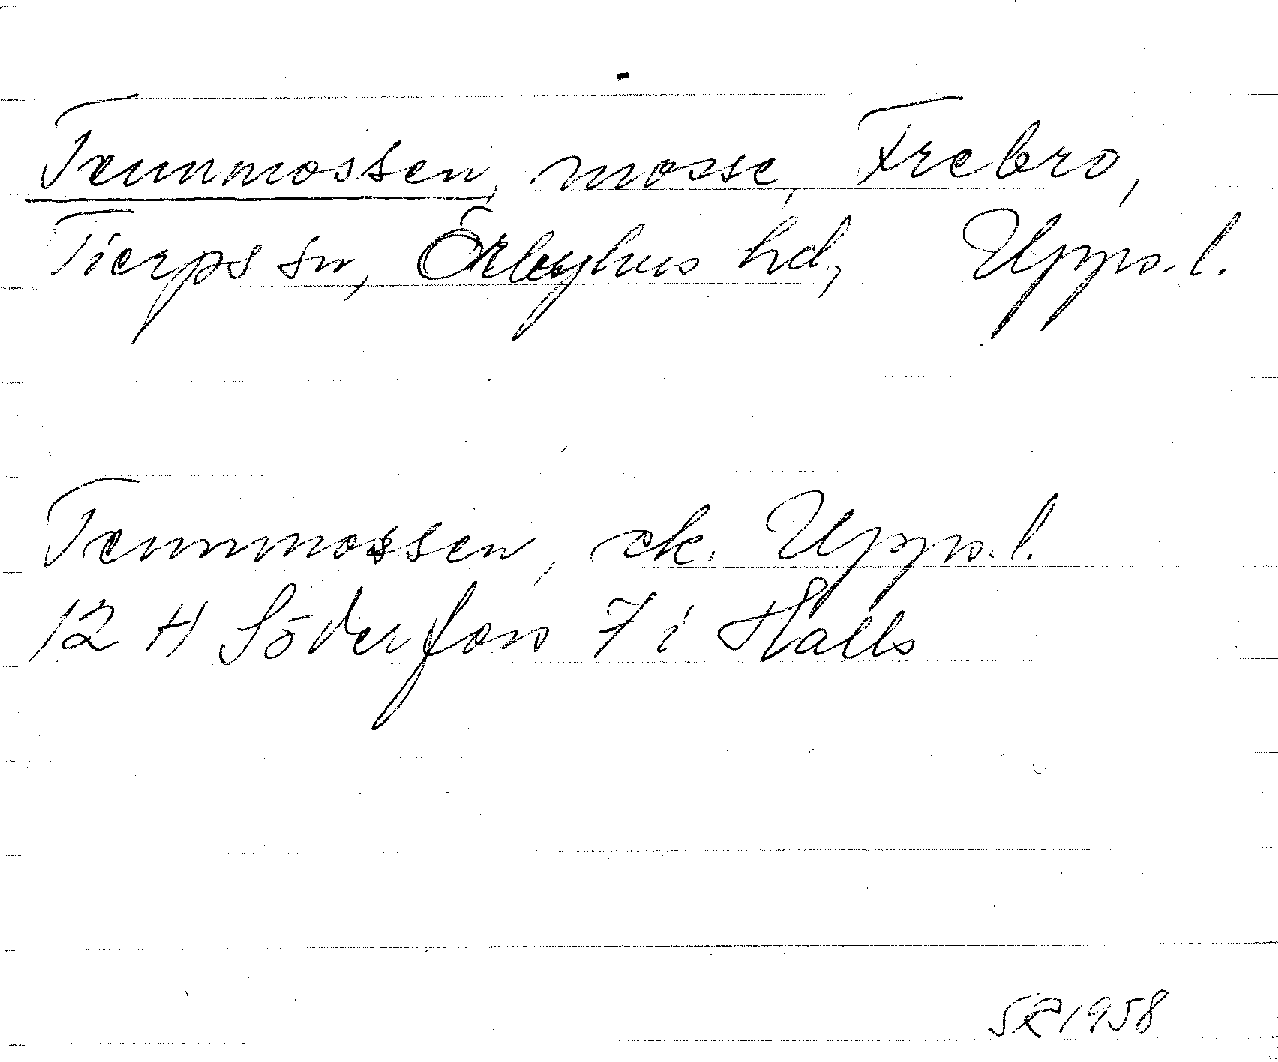 Tennmossen, mosse, Frebro,
Tierps sn, Örbyhus hd, Upps.l.
Tennmossen, ek. Upps.l.
12 H Söderfors 7 i Halls
SR 1958